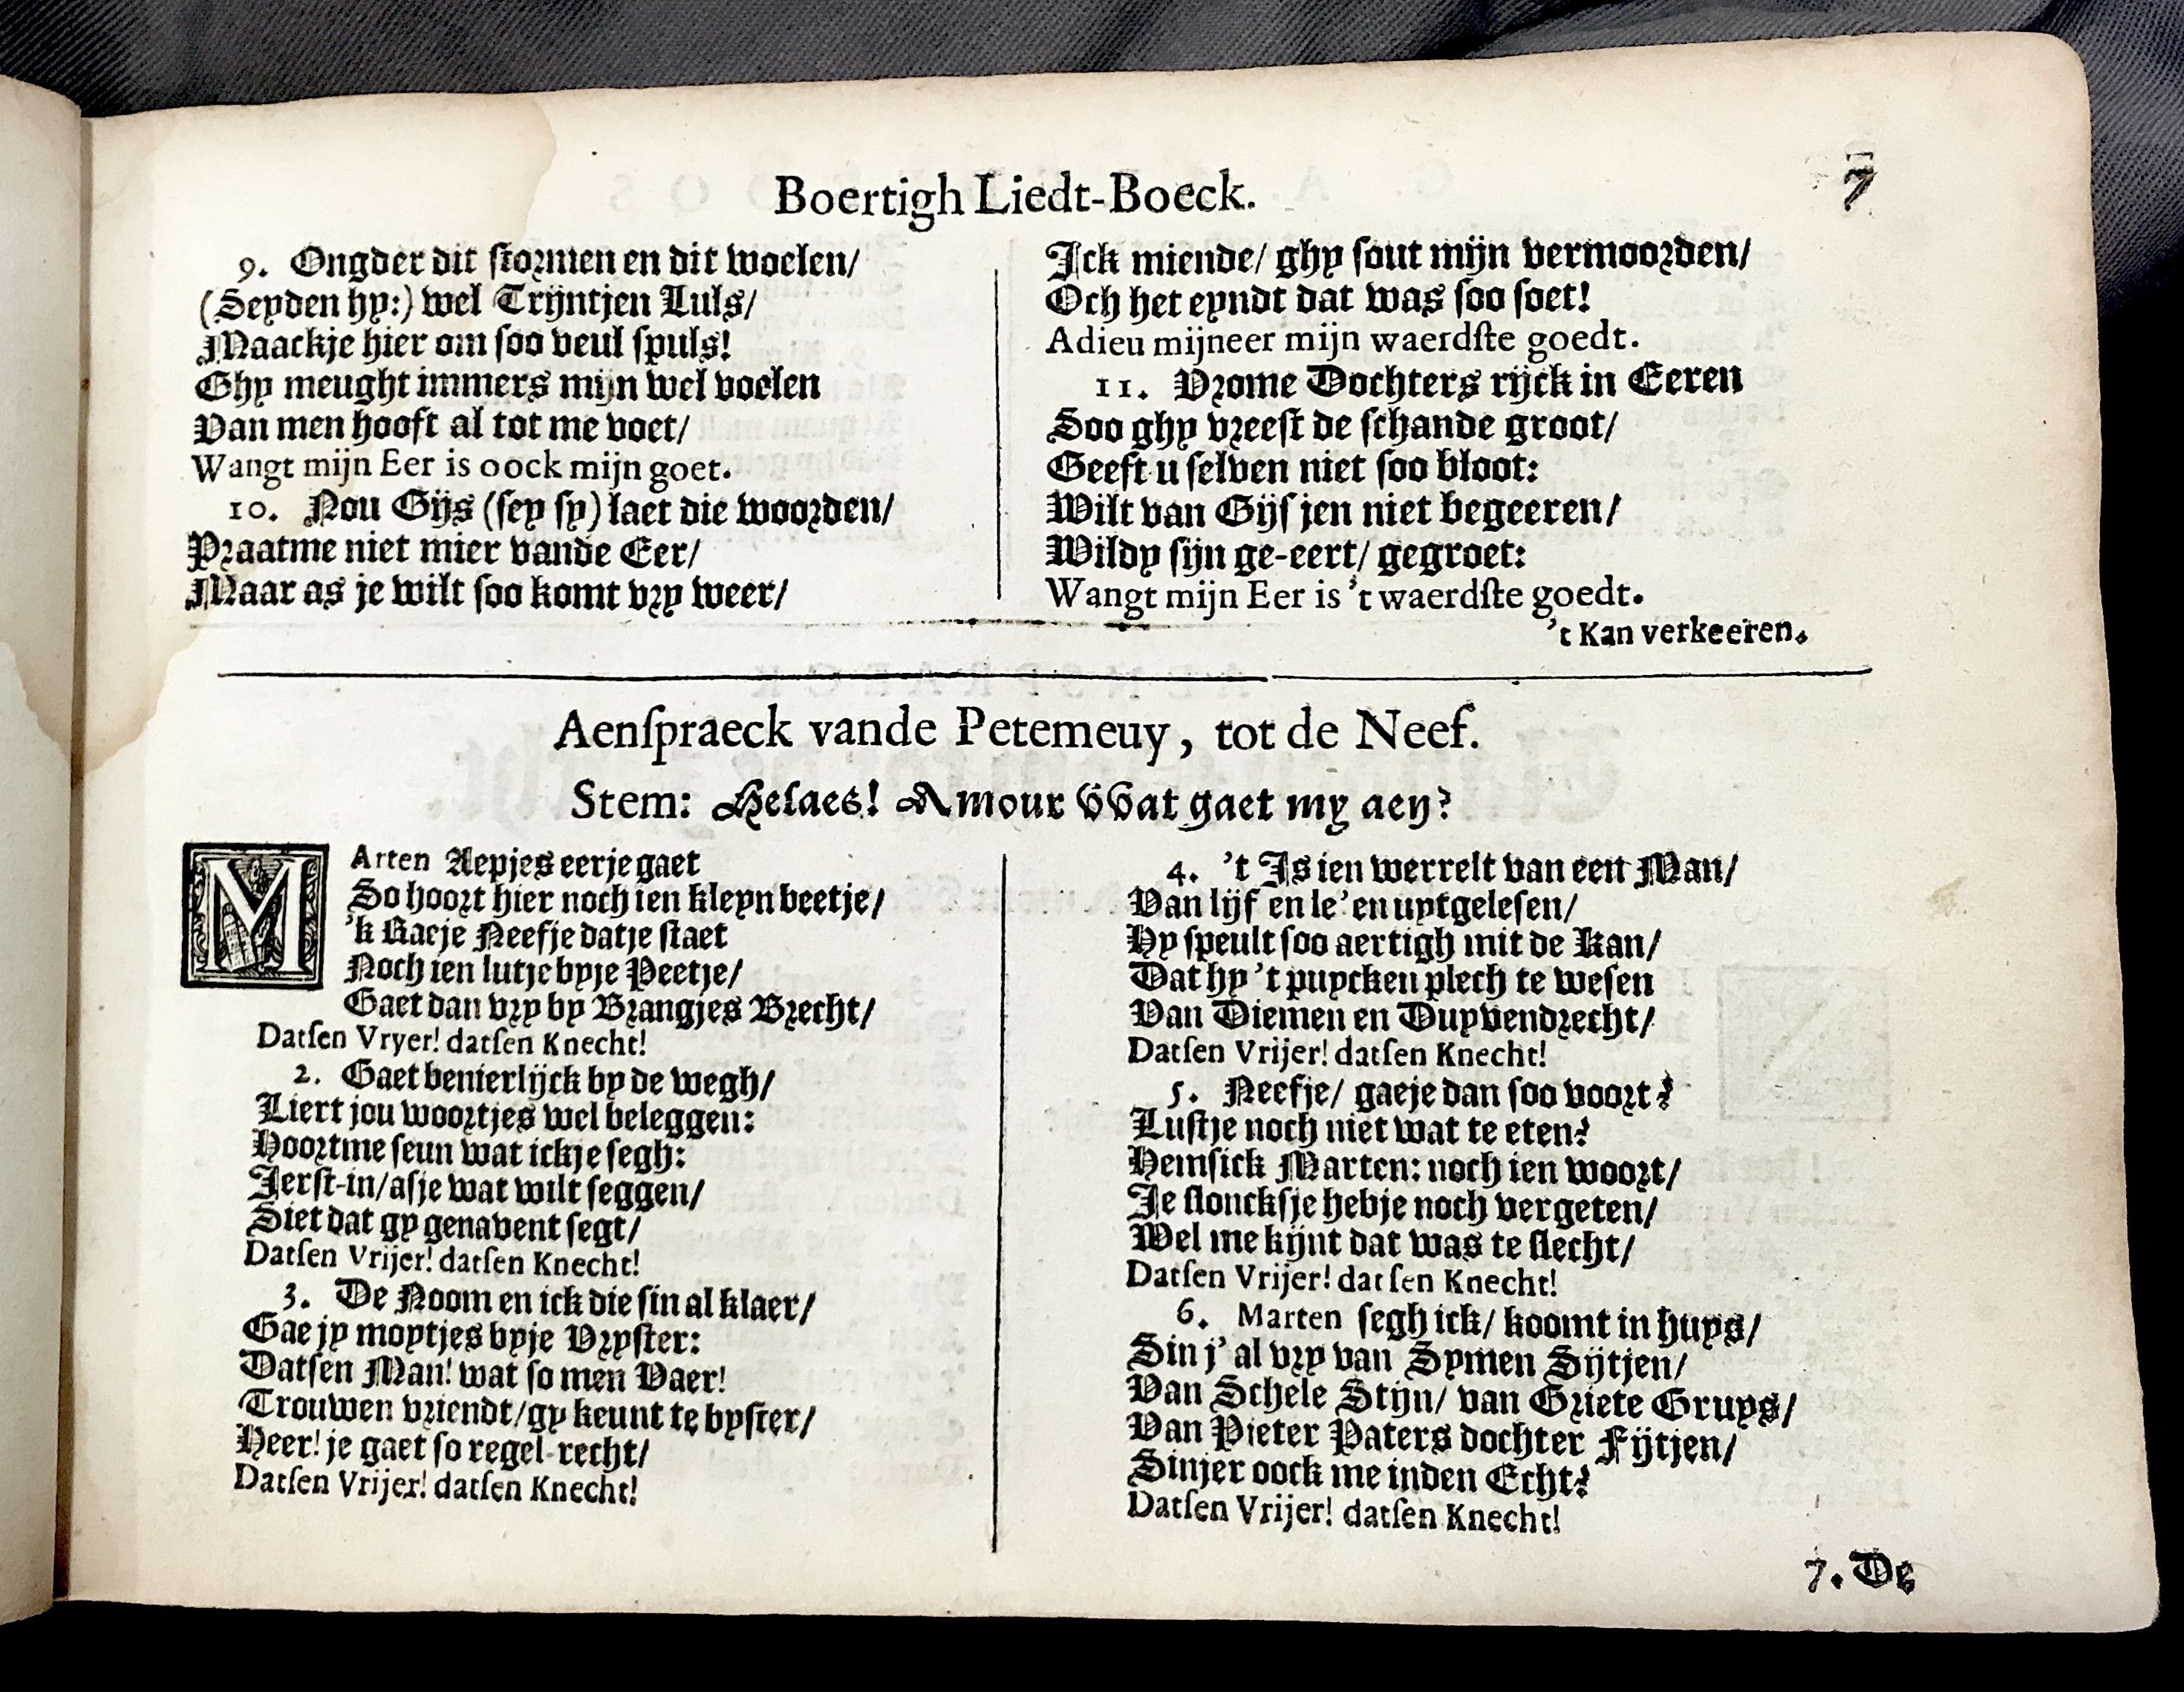 Boertigh Liedt-Boeck.
7
9. Ongder dit stormen en dit woelen/
(Seyden hy:) wel Trijntjen Luls/
Maackje hier om soo veul spuls!
Ghy meught immers mijn wel voelen
Van men hooft al tot me voet/
Wangt mijn Eer is oock mijn goet.
10. Nou Gijs (sey sy) laet die woorden/
Praatme niet mier vande Eer/
Maar as je wilt soo komt vry weer/
Ick miende/ ghy sout mijn vermoorden/
Och het eyndt dat was soo soet!
Adieu mijneer mijn waerdſte goedt.
11. Vrome Dochters rijck in Eeren
Soo ghy vreest de schande groot/
Geeft u selven niet soo bloot:
Wilt van Gijsjen niet begeeren/
Wildy sijn ge-eert/ gegroet:
Wangt mijn Eer is 't waerdſte goedt.
't Kan verkeeren.
Aenſpraeck vande Petemeuy, tot de Neef.
Stem: Helaes! Amour VVat gaet my aen?
MArten Aepjes eerje gaet
So hoort hier noch ien kleyn beetje/
'k Raeje Neefje datje staet
Noch ien lutje byje Peetje/
Gaet dan vry by Brangjes Brecht/
Datſen Vryer! datſen Knecht!
2. Gaet benierlijck by de wegh/
Liert jou woortjes wel beleggen:
Hoortme seun wat ickje segh:
Ierst-in/ asje wat wilt seggen/
Siet dat gy genavent segt/
Datſen Vrijer! datſen Knecht!
3. De Noom en ick die sin al klaer/
Gae jy moytjes byje Vryster:
Datsen Man! wat so men Vaer!
Trouwen vriendt/ gy keunt te byster/
Heer! je gaet so regel-recht/
Datſen Vrijer! datſen Knecht!
4. 't Is ien werrelt van een Man/
Van lijf en le' en uytgelesen/
Hy speult soo aertigh mit de Kan/
Dat hy 't puycken plech te wesen
Van Diemen en Duyvendrecht/
Datſen Vrijer! datſen Knecht!
5. Neefje/ gaeje dan soo voort?
Lustje noch niet wat te eten?
Hemsick Marten: noch ien woort/
Je sloncksje hebje noch vergeten/
Wel me kijnt dat was te slecht/
Datſen Vrijer! datſen Knecht!
6. Marten segh ick/ koomt in huys/
Sin j' al vry van Symen Sijtjen/
Van Schele Stijn/ van Griete Gruys/
Van Pieter Paters dochter Fijtjen/
Sinjer oock me inden Echt?
Datſen Vrijer! datſen Knecht!
7. De